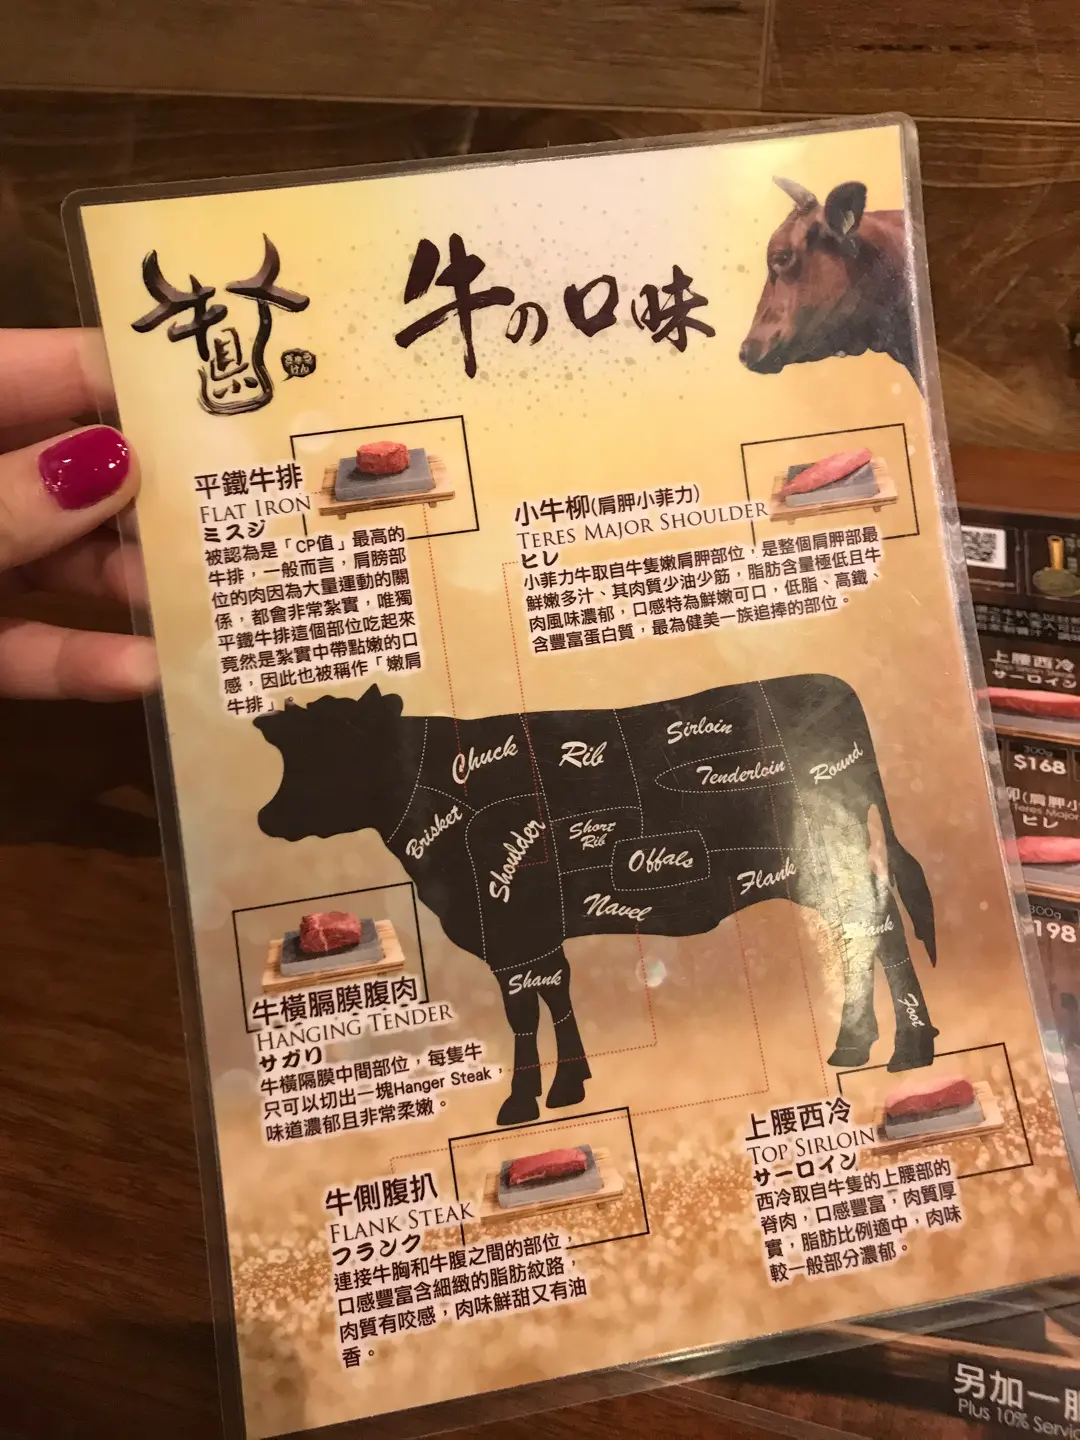 牛の口味
牛県
ぎゅう
けん
平鐵牛排
FLAT IRON
ミスジ
被認為是「CP值」最高的
牛排，一般而言，肩膀部
位的肉因為大量運動的關
係，都會非常紮實，唯獨
平鐵牛排這個部位吃起來
竟然是紮實中帶點嫩的口
感，因此也被稱作「嫩肩
牛排」。
小牛柳(肩胛小菲力)
TERES MAJOR SHOULDER
ヒレ
小菲力牛取自牛隻嫩肩胛部位，是整個肩胛部最
鮮嫩多汁、其肉質少油少筋，脂肪含量極低且牛
肉風味濃郁，口感特為鮮嫩可口，低脂、高鐵、
含豐富蛋白質，最為健美一族追捧的部位。
Chuck
Rib
Sirloin
Tenderloin
Round
Brisket
Shoulder
Short
Rib
Offals
Flank
Navel
Shank
Shank
Foot
牛橫膈膜腹肉
HANGING TENDER
サガリ
牛橫隔膜中間部位，每隻牛
只可以切出一塊Hanger Steak，
味道濃郁且非常柔嫩。
牛側腹扒
FLANK STEAK
フランク
連接牛胸和牛腹之間的部位，
口感豐富含細緻的脂肪紋路，
肉質有咬感，肉味鮮甜又有油
香。
上腰西冷
TOP SIRLOIN
サーロイン
西冷取自牛隻的上腰部的
脊肉，口感豐富，肉質厚
實，脂肪比例適中，肉味
較一般部分濃郁。
上腰西冷
サーロイン
300g
$168
柳(肩胛小
Teres Major
ヒレ
300g
198
另加一服
Plus 10% Servic